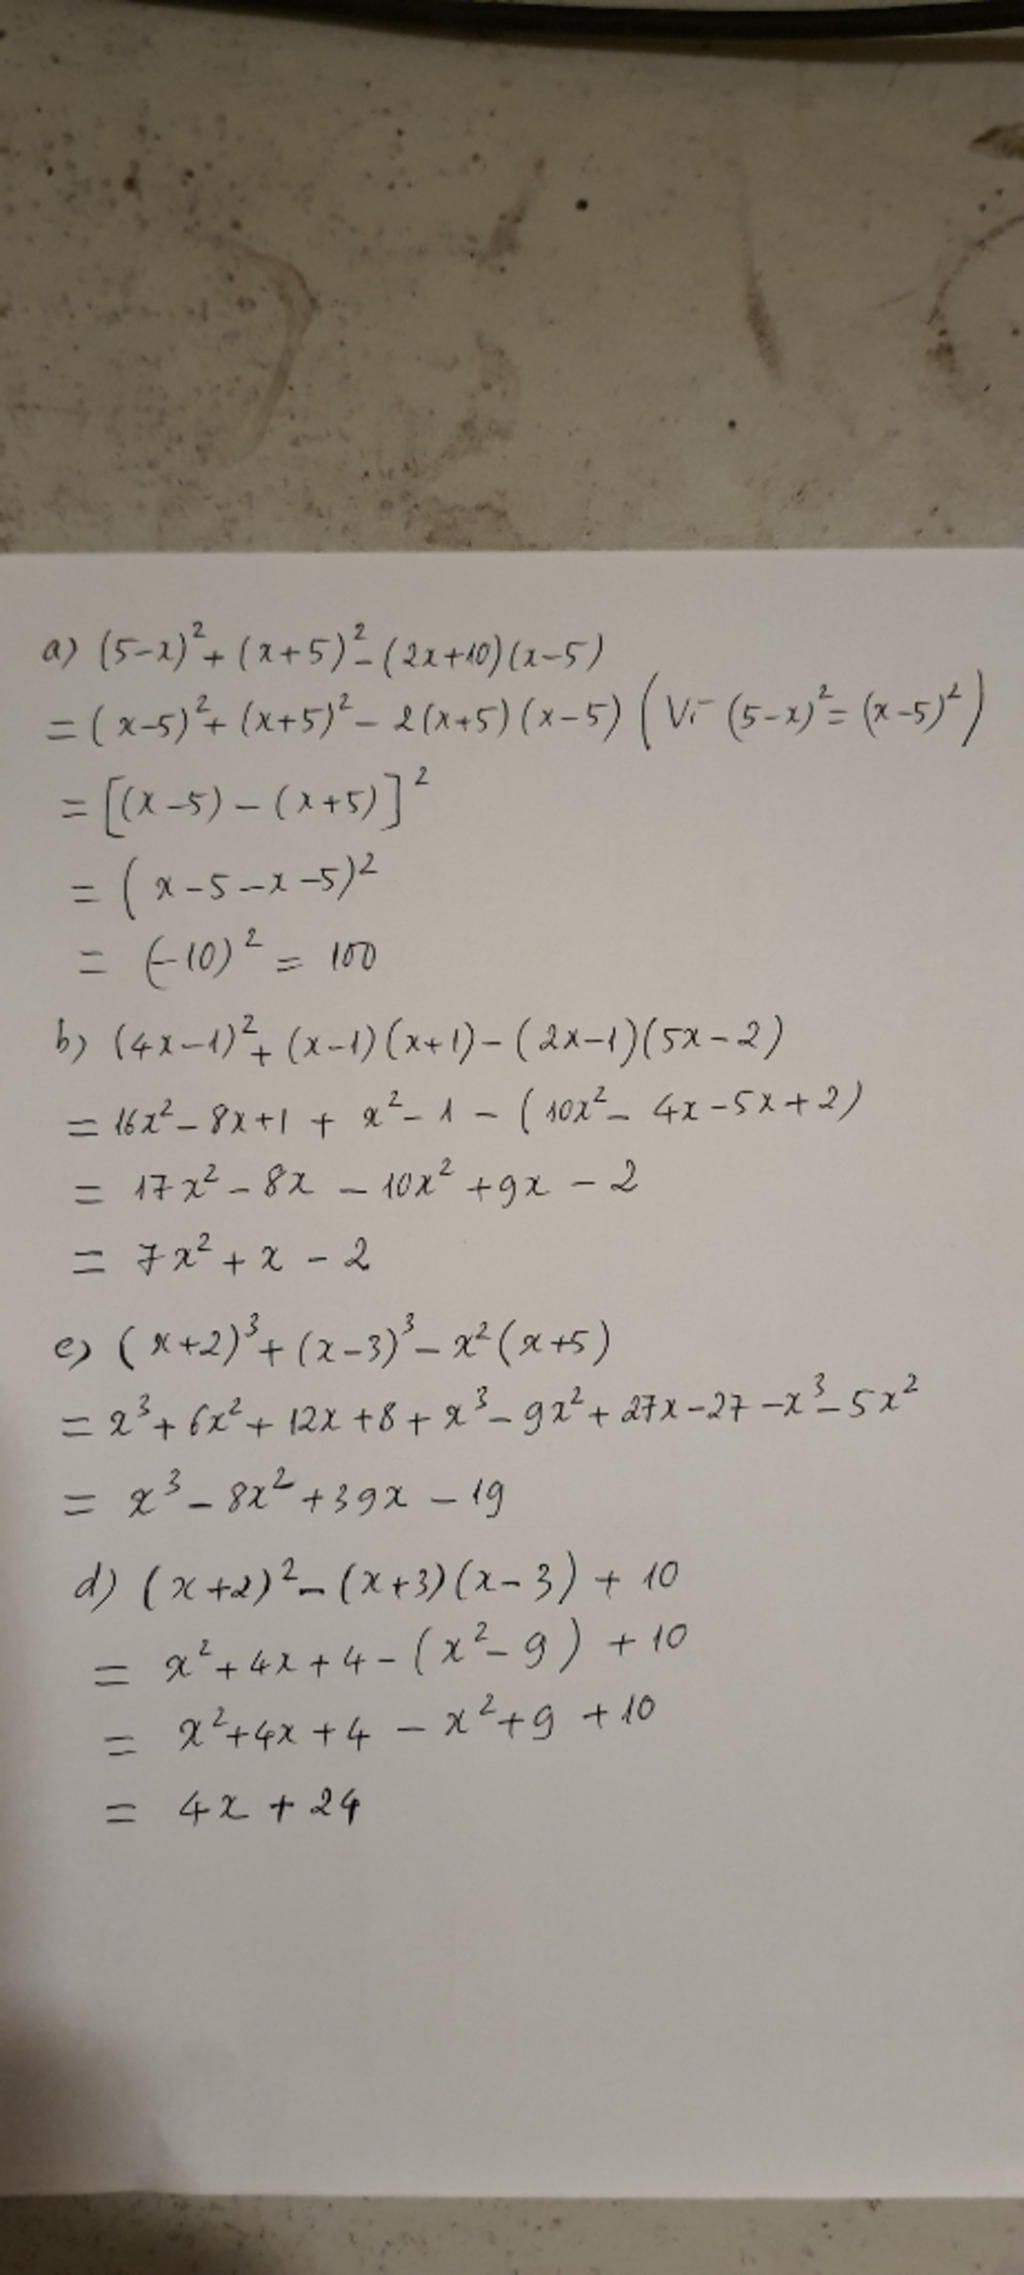 a) (5-x)²+(x+5)²-(2x+10)(x-5)
=(x-5)²+(x+5)²-2(x+5)(x-5) (Vì (5-x)²=(x-5)²)
=[(x-5)-(x+5)]²
=(x-5-x-5)²
= (-10)² = 100
b) (4x-1)²+(x-1)(x+1)-(2x-1)(5x-2)
=16x²-8x+1+x²-1-(10x²-4x-5x+2)
= 17x²-8x-10x²+9x-2
= 7x²+x-2
c) (x+2)³+(x-3)³-x²(x+5)
=x³+6x²+12x+8+x³-9x²+27x-27-x³-5x²
= x³-8x²+39x-19
d) (x+2)²-(x+3)(x-3)+10
= x²+4x+4-(x²-9)+10
= x²+4x+4-x²+9+10
= 4x+24